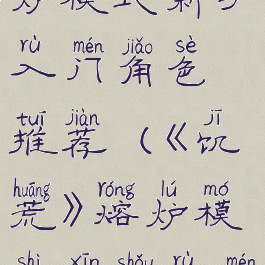 炉模式新手
rù mén jiǎo sè
入门角色
tuī jiàn jī
推荐（《饥
huāng róng lú mó
荒》熔炉模
shì xīn shǒu rù mén